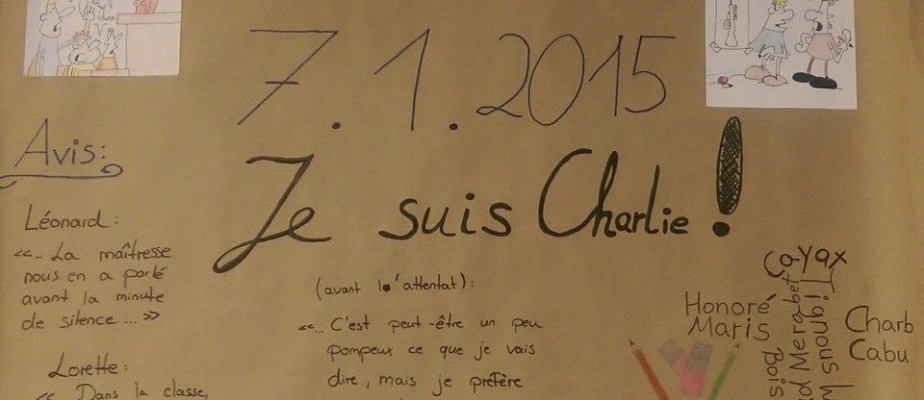 7.1.2015
Je suis Charlie !
Avis:
Léonard :
«... La maîtresse
nous en a parlé
avant la minute
de silence ... »
Lorette :
« Dans la classe,
(avant l'attentat) :
«... C'est peut-être un peu
pompeux ce que je vais
dire, mais je préfère
Honoré
Maris
Cayax
Charb
Cabu